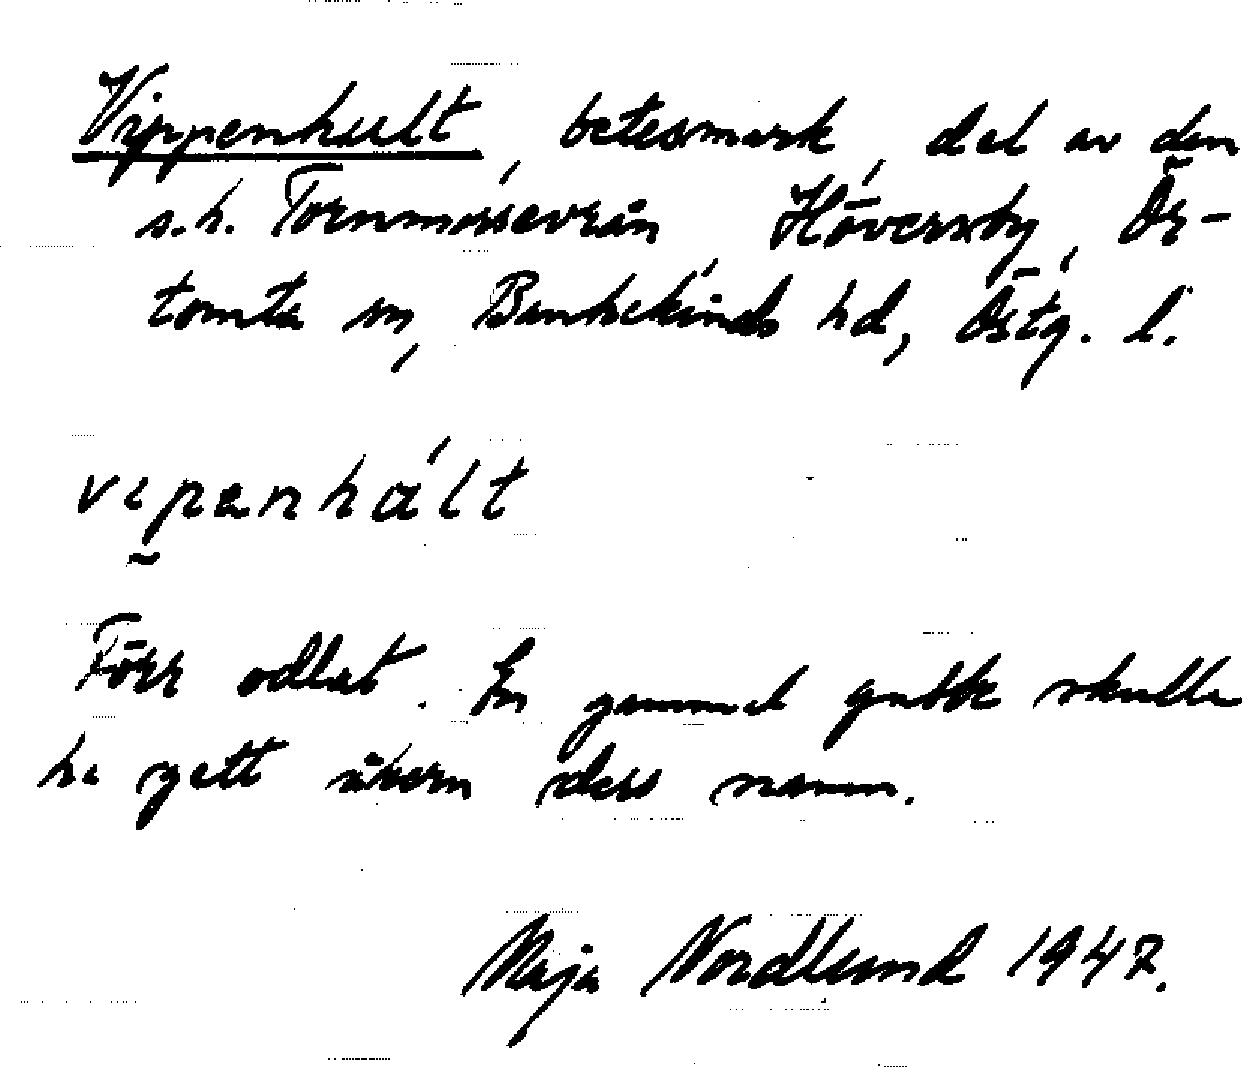 Vippenhult, betesmark, del av den
s.k. Tornmossevrån Höversby, Ör-
tomta sn, Bankekinds hd, Östg. l.
vipenhált
Förr odlat. En gammal gubbe skulle
ha gett åkern dess namn.
Maja Nordlund 1947.